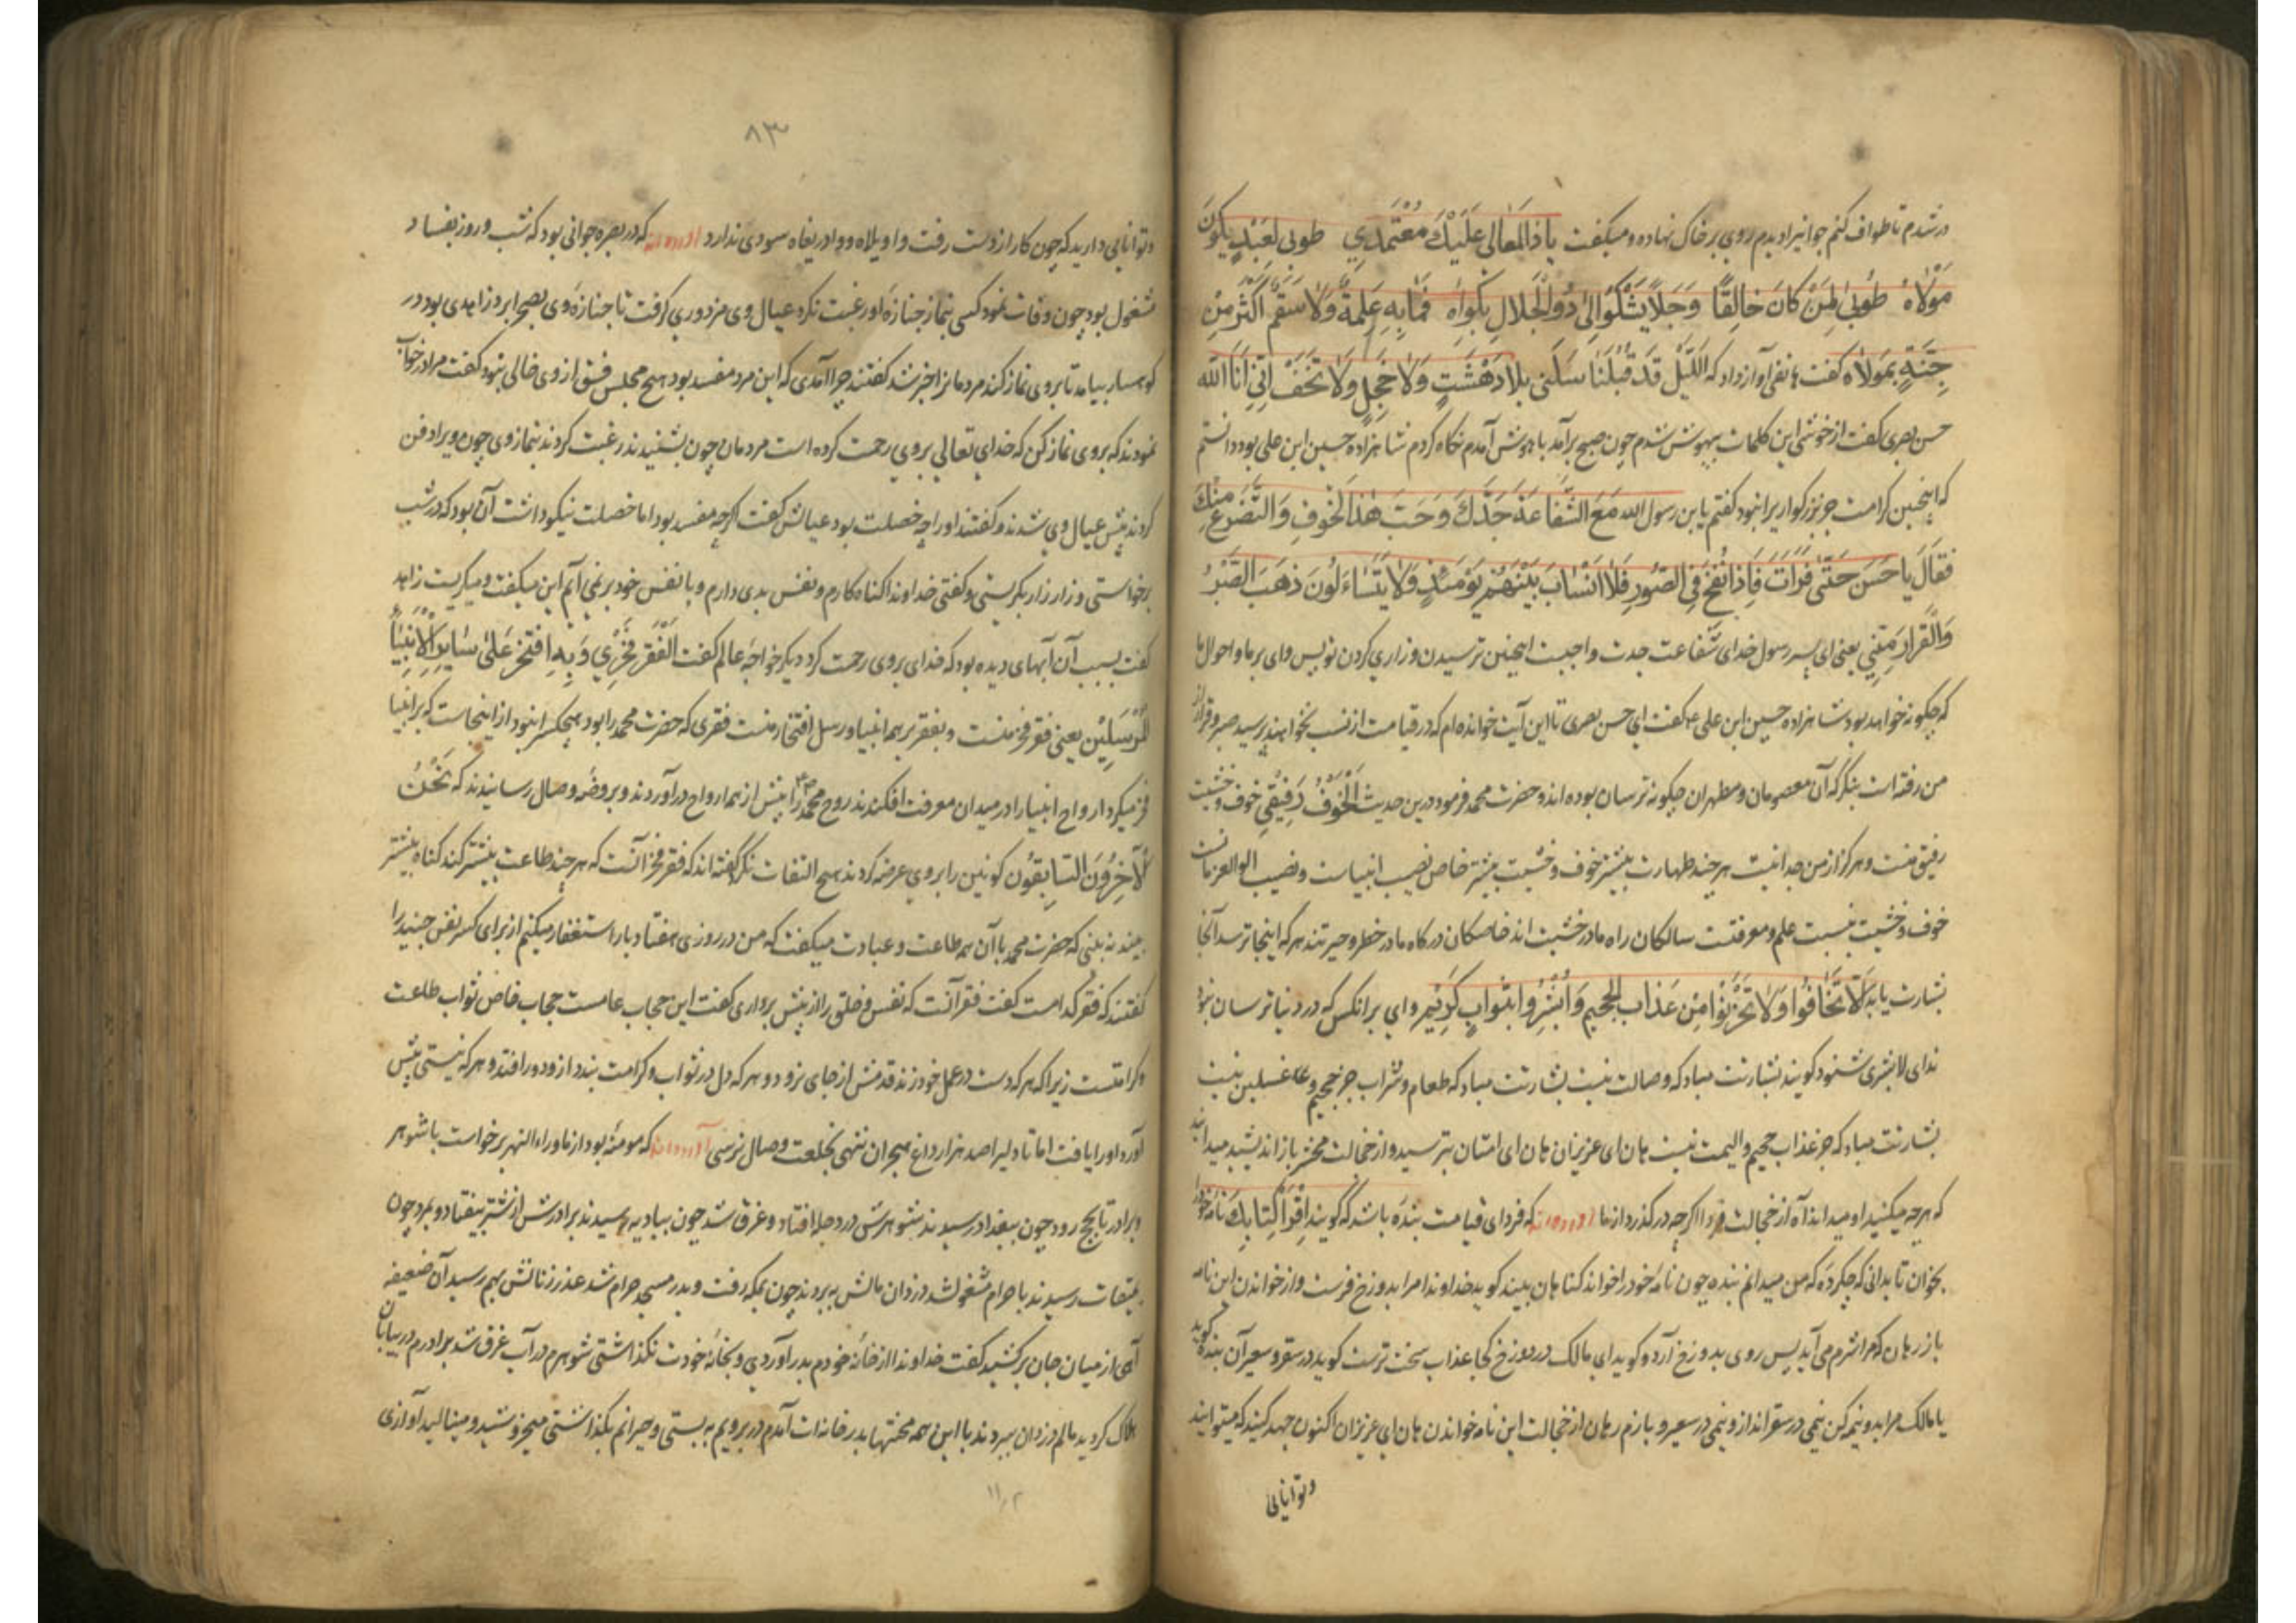 در شدم تا طواف کنم جوانیرا دیدم روی بر خاک نهاده و میگفت یا ذَالمَعَالی عَلَیْكَ مُعْتَمَدِي طوبی لِعَبْدٍ یَکُونَ
مَوْلَاهُ طُوبیٰ لِمَنْ کَانَ خَالِقًا وَجَلًا یَشْکُوا اِلیٰ ذُو الْجَلَالِ بَکْوَاهُ فَمَا بِهِ عَلِمَةٌ وَلَا سَقَمٌ اَکْثَرَ مِنْ
حِتَنةٍ بِمَوْلَاه گفت هاتفی آواز داد که اَللَّیْل قَدْ قَبْلَنَا سَلَنی بِلَا دَهْشَتٍ وَلَا خَجِلٍ وَلَا تَخَفْ اِنّی اَنَا الله
حسن بصری گفت از خوشی این کلمات بیهوش شدم چون صبح برآمد باهوش آمدم نگاه کردم شاهزاده حسین ابن علی بود دانستم
که اینچنین کرامت جز بزرگواریرا نبود گفتم یابن رسول الله مَعَ الشَّفَاعَةِ جَدَّكَ وَجَبَتَ هٰذَا الْخَوْفِ وَالتَّضَرُّعِ مِنْكَ
فَقَالَ یَا حَسَنَ حَتّیٰ قَرَاتَ فَاِذَا نُفِخَ فِی الصُّورِ فَلَا اَنْسَابَ بَیْنَهُمْ یَوْمَئِذٍ وَلَا یَتَسَاءَلُونَ ذَهَبَ الصَّبْرُ
وَالْقَرَارَ مِنّی یعنی ای پسر رسول خدای شفاعت جدت واجبت اینچنین ترسیدن و زاری کردن تو پس وای بر ما و احوال ما
که چگونه خواهد بود شاهزاده حسین ابن علی ع گفت ای حسن بصری تا این آیت خوانده ام که در قیامت از نسب نخواهند پرسید صبر و قرار از
من رفته است بنگر که آن معصومان و مطهران چگونه ترسان بوده اند و حضرت محمد فرمود درین حدیث اَلْخَوْفُ رَفِیقِی خوف و خشیت
رفیق منت و هرگز از من جدا نیت هر چند طهارت بیشتر خوف و خشیت بیشتر خاص نصیب انبیاست و نصیب الوالعزمانت
خوف و خشیت بنسبت علم و معرفتت سالکان راه ما در خشیت اند خاصکان درگاه ما در خطر و حیرتند هر که اینجا ترسد آنجا
بشارت یابد که لَا تَخَافُوا وَلَا تَحْزَنُوا مِنْ عَذَابِ الْجَحِیمِ وَاَبْشِرُوا بِثَوَابٍ کَرِیْمٍ وای بر آنکس که در دنیا ترسان نبود
ندای لا بشری شنود گویند بشارتت مباد که وصالت نیست بشارتت مباد که طعام و شراب جز حجیم و غسلین نیست
بشارتت مباد که جز عذاب جحیم و الیمت نیست هان ای عزیزان هان ای امتان بترسید و از خجالت محشر باز اندیشید میدانید
که هر چه میکنید او میداند آه از خجالت فردا اگر چه در گذرد از ما آورده اند که فردای قیامت بنده باشد که گویند اِقْرَاْ کِتَابِكَ نامه خود را
بخوان تا بدانی که چکرده که من میدانم بنده چون نامه خود را خواند گناهان بیند گوید خداوندا مرا بدوزخ فرست و از خواندن این نامه
باز رهان که مرا شرم می آید پس روی بدوزخ آرد و گوید ای مالک در دوزخ کجا عذاب سخت ترست گوید در سقر و سعیر آن بنده گوید
یا مالک مرا بدو نیم کن نیمی در سقر انداز و نیمی در سعیر و بازم رهان از خجالت این نامه خواندن هان ای عزیزان اکنون جهد کنید که میتوانید
وتوانایی
۸۳
وتوانایی دارید که چون کار از دست رفت واویلاه و وادریغاه سودی ندارد آورده اند که در بصره جوانی بود که شب و روز بفساد
مشغول بود چون وفات نمود کسی بنماز جنازه او رغبت نکرد عیال وی مزدوری گرفت تا جنازه وی بصحرا برد زاهدی بود در
کوهسار بیامد تا بروی نماز کند مردمانرا خبر شد گفتند چرا آمدی که این مرد مفسد بود هیچ مجلس فسق از وی خالی نبود گفت مرا در خواب
نمودند که بروی نماز کن که خدای تعالی بروی رحمت کرده است مردمان چون بشنیدند رغبت کردند بنماز وی چون ویرا دفن
کردند پیش عیال وی شدند و گفتند او را چه خصلت بود عیالش گفت اگرچه مفسد بود اما خصلت نیکو داشت آن بود که در شب
برخواستی و زار زار بگریستی و گفتی خداوندا گناه کارم و نفس بدی دارم و با نفس خود برنمی آیم این میگفت و میگریست زاهد
گفت بسبب آن آبهای دیده بود که خدای بروی رحمت کرد دیگر خواجه عالم گفت اَلْفَقْرُ فَخْرِي وَبِهِ افْتَخِرُ عَلیٰ سَایِرِ الْاَنْبِیَاءُ
الْمُرْسَلِیْن یعنی فقر فخر منست و بفقر بر همه انبیا و رسل افتخار منست فقری که حضرت محمد را بود هیچکس را نبود از اینجاست که بر انبیا
فخر میکرد ارواح انبیا را در میدان معرفت افکندند روح محمد را پیش از همه ارواح در آوردند و بروضه وصال رسانیدند که نَحْنُ
لْآخِرُونَ السَّابِقُون کونین را بروی عرضه کردند هیچ التفات نکرد گفته اند که فقر فخر آنست که هر چند طاعت بیشتر کند گناه بیشتر
بیند نه بینی که حضرت محمد با آن همه طاعت و عبادت میگفت که من در روزی هفتاد بار استغفار میکنم از برای کسر نفس جنید را
گفتند که فقر کدامست گفت فقر آنست که نفس و خلق را از پیش برداری گفت این حجاب عامست حجاب خاص ثواب طاعت
وکرامتست زیرا که هر که دست در عمل خود زند قدمش از جای برود و هر که دل در ثواب و کرامت بندد از او دور افتد و هر که نیستی پیش
آورد او را یافت اما تا دلیرا صد هزار داغ هجران ننهی بخلعت وصال نرسی آورده اند که مومنه بود از ماوراء النهر برخواست با شوهر
و برادر تا بحج رود چون ببغداد رسیدند شوهرش در دجله افتاد و غرق شد چون ببادیه رسیدند برادرش از شتر بیفتاد و بمرد چون
بمیقات رسیدند باحرام مشغول شد دزدان مالش به بردند چون بمکه رفت و بدر مسجد حرام شد عذر زنانش بهم رسید آن ضعیفه
آهی از میان جان برکشید گفت خداوندا از خانه خودم بدر آوردی و بخانه خودت نگذاشتی شوهرم در آب غرق شد برادرم در بیابان
هلاک گردید مالم دزدان ببردند با این همه محنتها بدر خانه ات آمدم در برویم به بستی و حیرانم بگذاشتی میخروشید و مینالید آوازی
۱۱۲